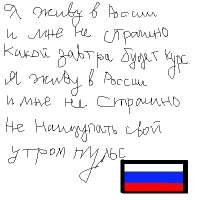 Я живу в России
и мне не страшно
Какой завтра будет курс
Я живу в России
и мне не страшно
Не нащупать свой
утром пульс